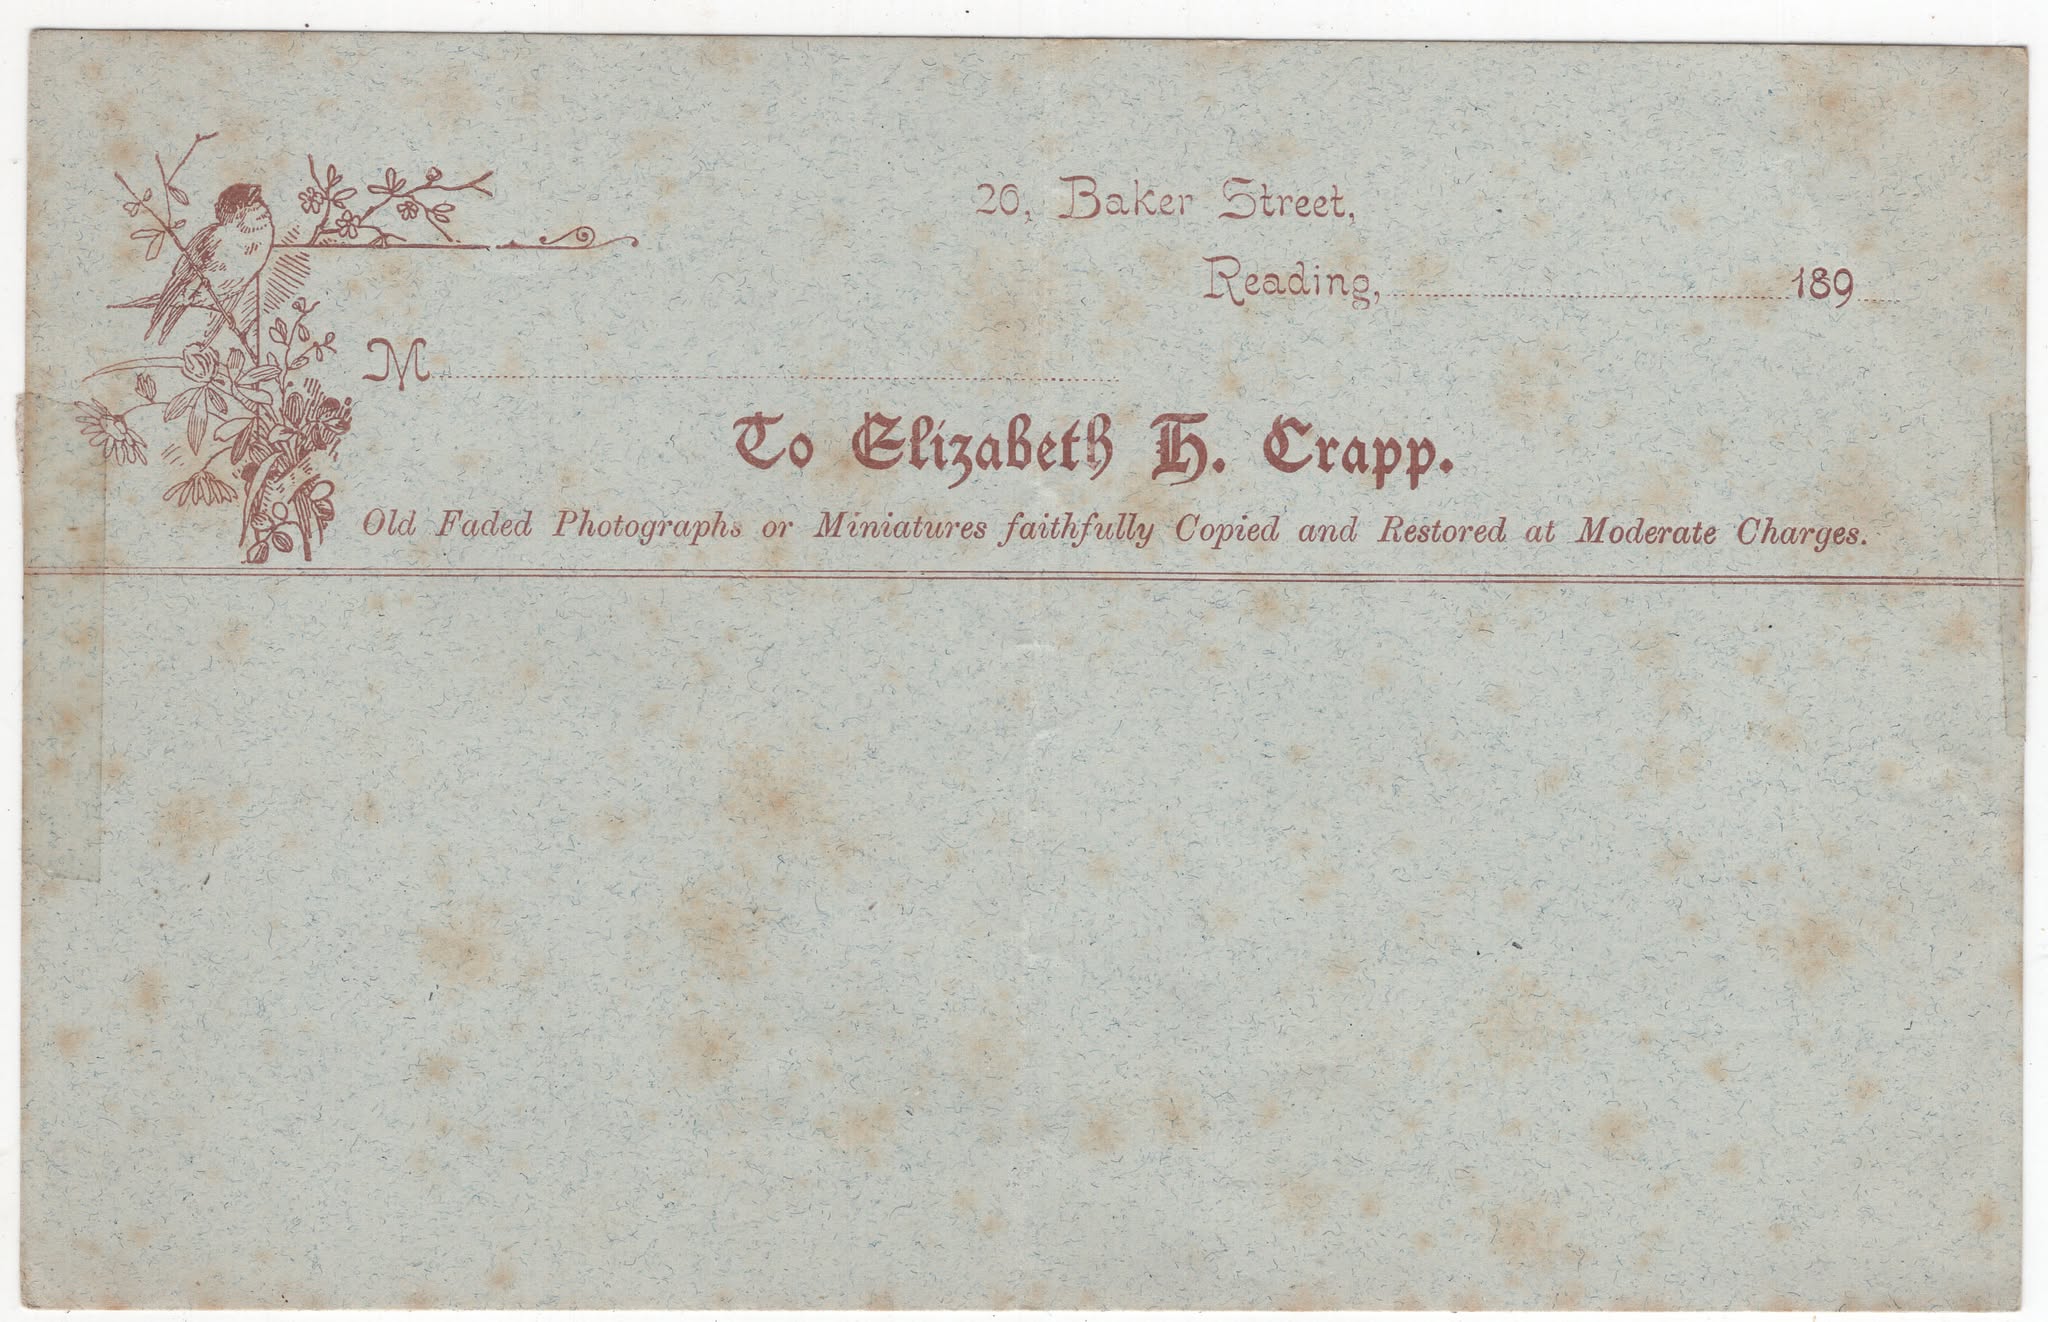 20, Baker Street,
Reading, 189
M
To Elizabeth H. Crapp.
Old Faded Photographs or Miniatures faithfully Copied and Restored at Moderate Charges.